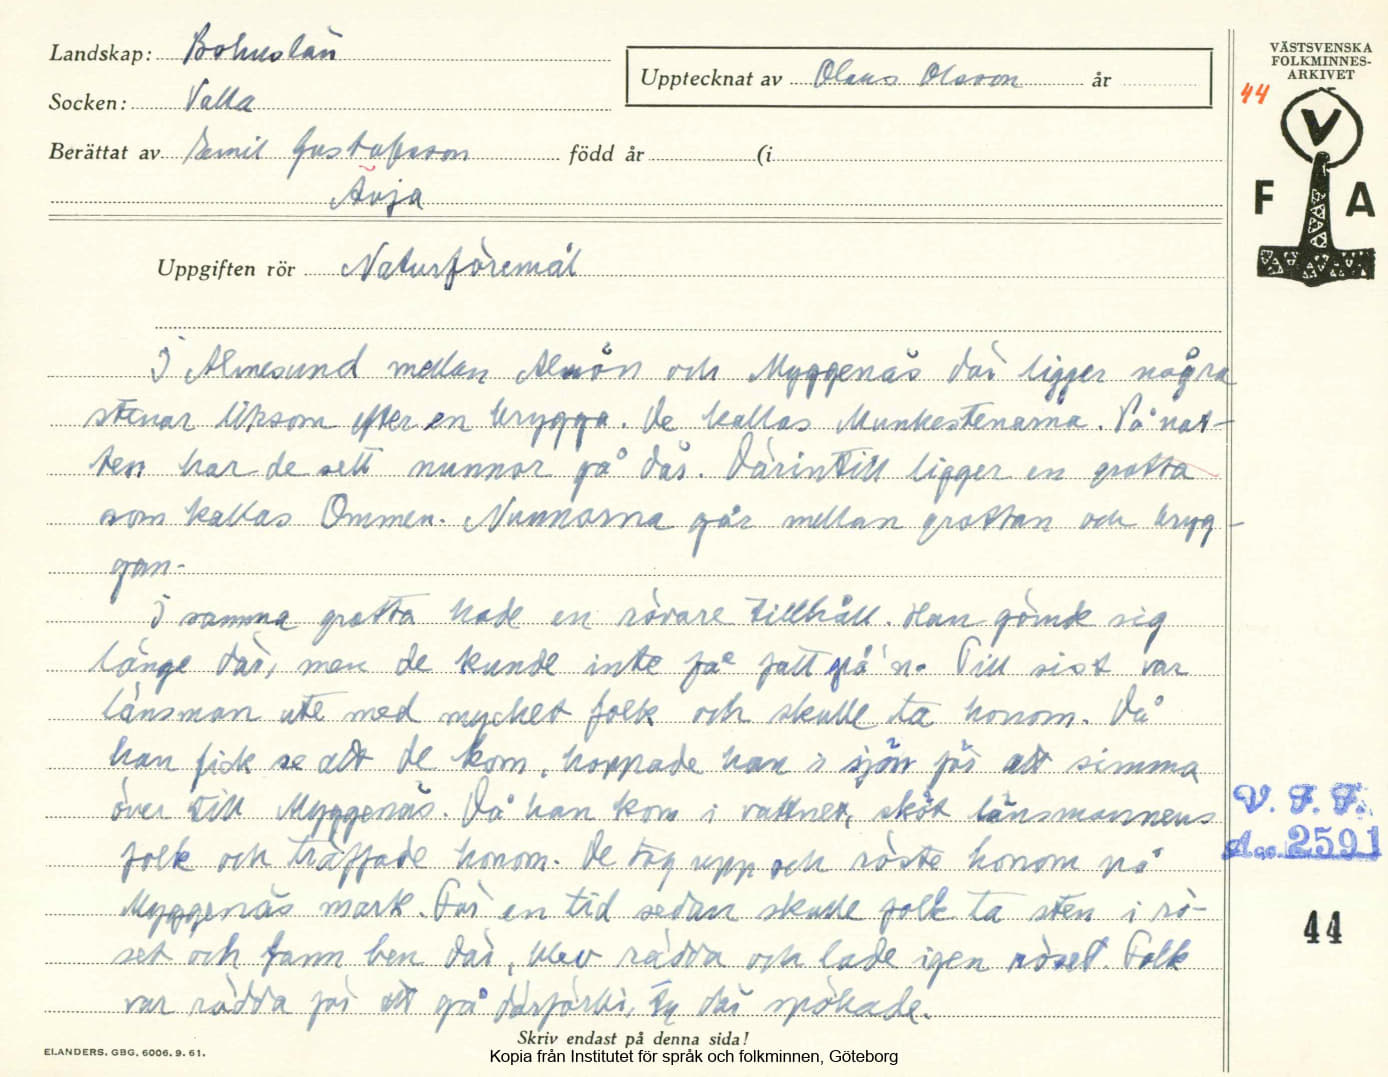 Landskap: Bohuslän
Socken: Valla
Upptecknat av Olaus Olsson år
Berättat av Emil Gustafsson född år (i
Ävja
Uppgiften rör Naturföremål
VÄSTSVENSKA
FOLKMINNES-
ARKIVET
44
V
F A
I Almesund mellan Almön och Myggenäs där ligger några
stenar liksom efter en brygga. De kallas Munkestenarna. På nat-
ten har de sett nunnor gå där. Därintill ligger en grotta
som kallas Ommen. Nunnorna går mellan grottan och bryg-
gan.
I samma grotta hade en rövare tillhåll. Han gömde sig
länge där, men de kunde inte få fatt på'n. Till sist var
länsman ute med mycket folk och skulle ta honom. Då
han fick se att de kom, hoppade han i sjön för att simma
över till Myggenäs. Då han kom i vattnet, sköt länsmannens
folk och träffade honom. De tog upp och röste honom på
Myggenäs mark. För en tid sedan skulle folk ta sten i rö-
set och fann ben där, blev rädda och lade igen röset. Folk
var rädda för att gå därförbi, ty där spökade.
V. F. F.
Acc. 2591
44
Skriv endast på denna sida!
ELANDERS, GBG, 6006. 9. 61.
Kopia från Institutet för språk och folkminnen, Göteborg